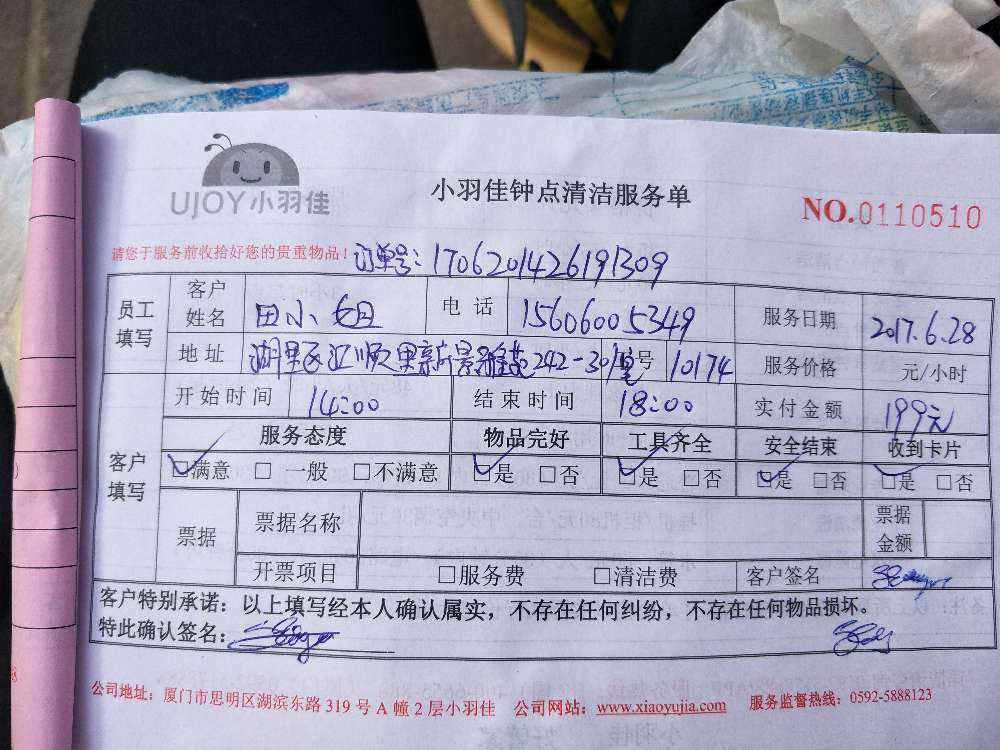 UJOY小羽佳
小羽佳钟点清洁服务单
NO.0110510
请您于服务前收拾好您的贵重物品！ 订单号：1706201426191309
员工填写 客户姓名 田小姐 电话 15606005349 服务日期 2017.6.28
地址 湖里区江顺里新景雅苑242-301室 号 10174 服务价格 元/小时
开始时间 14:00 结束时间 18:00 实付金额 199元
客户填写 服务态度 物品完好 工具齐全 安全结束 收到卡片
☑满意 □一般 □不满意 ☑是 □否 ☑是 □否 ☑是 □否 ☑是 □否
票据 票据名称 票据金额
开票项目 □服务费 □清洁费 客户签名
客户特别承诺：以上填写经本人确认属实，不存在任何纠纷，不存在任何物品损坏。
特此确认签名：
公司地址：厦门市思明区湖滨东路 319 号 A 幢 2 层小羽佳 公司网站：www.xiaoyujia.com 服务监督热线：0592-5888123